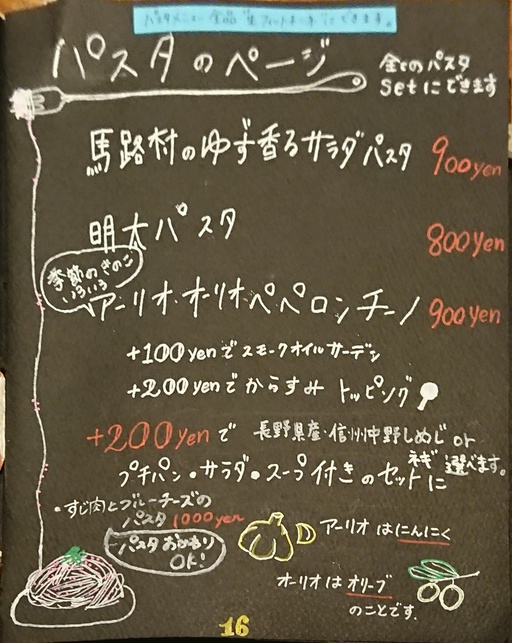 パスタメニュー全品
できます。
パスタのページ
全てのパスタ
setにできます
馬路村のゆず香るサラダパスタ 900yen
明太パスタ 800yen
季節のきのこ
いろいろ
アーリオ・オーリオ・ペペロンチーノ 900yen
+100yenでスモークオイルサーデン
+200yenでからすみ トッピング
+200yenで 長野県産・信州中野しめじor
ネギ 選べます。
プチパン・サラダ・スープ付きのセットに
・すじ肉とブルーチーズの
パスタ 1000yen
パスタおかわり
OK!
アーリオはにんにく
オーリオはオリーブ
のことです。
16